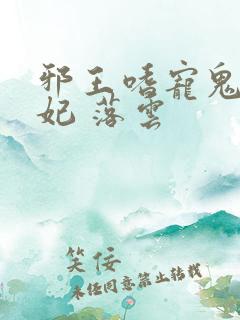 邪王嗜寵鬼
妃 落雲
笑佞
未经同意禁止转载